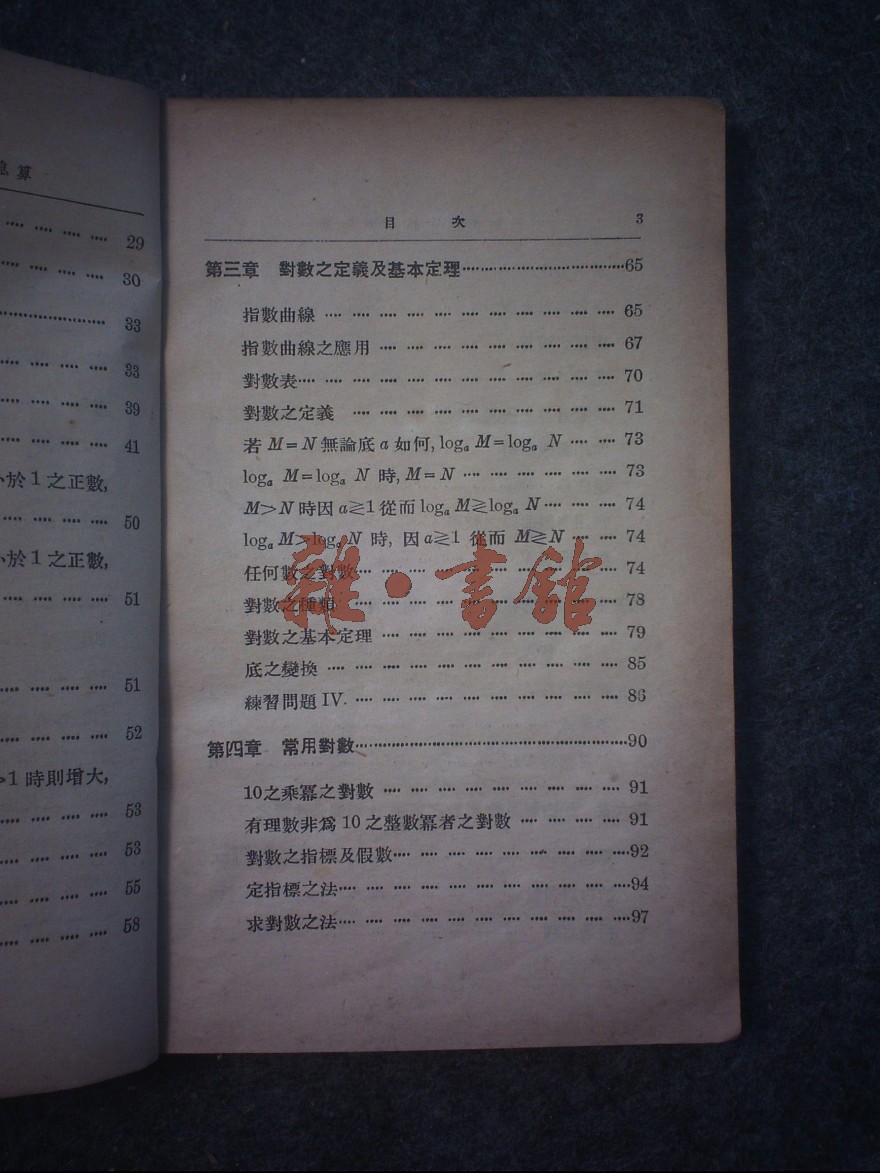 息算
29
30
33
33
39
41
小於1之正數,
50
小於1之正數,
51
51
52
>1時則增大,
53
53
55
58
目 次 3
第三章 對數之定義及基本定理 65
指數曲線 65
指數曲線之應用 67
對數表 70
對數之定義 71
若 M=N 無論底 a 如何, logₐ M=logₐ N 73
logₐ M=logₐ N 時, M=N 73
M>N 時因 a≷1 從而 logₐ M≷logₐ N 74
logₐ M>logₐ N 時, 因 a≷1 從而 M≷N 74
任何數之對數 74
對數之種類 78
對數之基本定理 79
底之變換 85
練習問題 IV. 86
第四章 常用對數 90
10之乘冪之對數 91
有理數非爲 10 之整數冪者之對數 91
對數之指標及假數 92
定指標之法 94
求對數之法 97
雜·書館